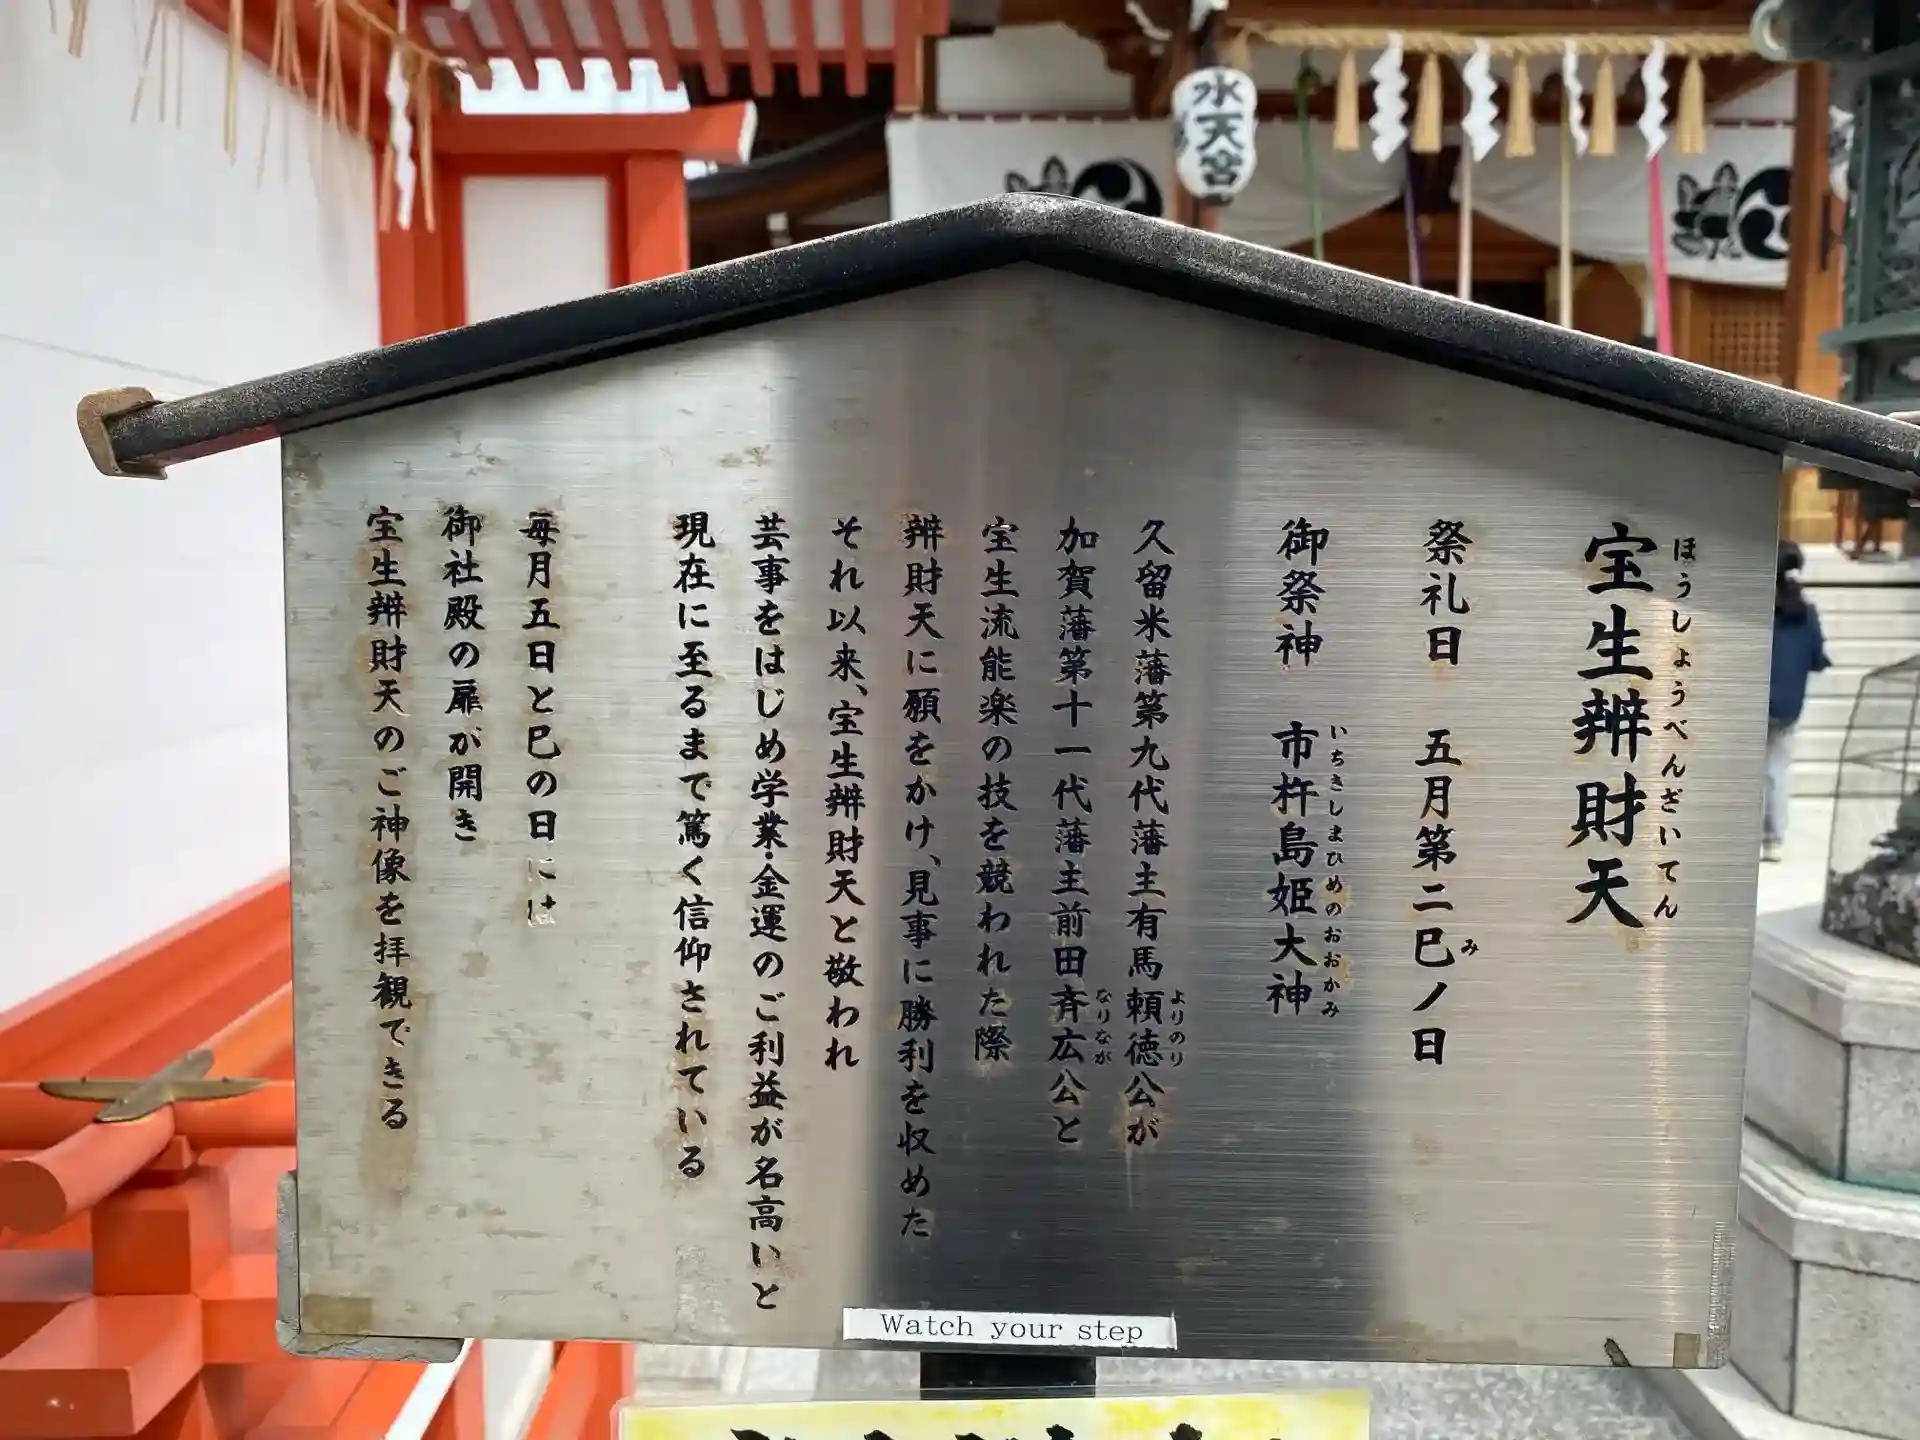 水天宮
宝生辨財天
ほうしょうべんざいてん
祭礼日 五月第二巳ノ日
み
御祭神 市杵島姫大神
いちきしまひめのおおかみ
久留米藩第九代藩主有馬頼徳公が
よりのり
加賀藩第十一代藩主前田斉広公と
なりなが
宝生流能楽の技を競われた際
辨財天に願をかけ、見事に勝利を収めた
それ以来、宝生辨財天と敬われ
芸事をはじめ学業・金運のご利益が名高いと
現在に至るまで篤く信仰されている
毎月五日と巳の日には
御社殿の扉が開き
宝生辨財天のご神像を拝観できる
Watch your step